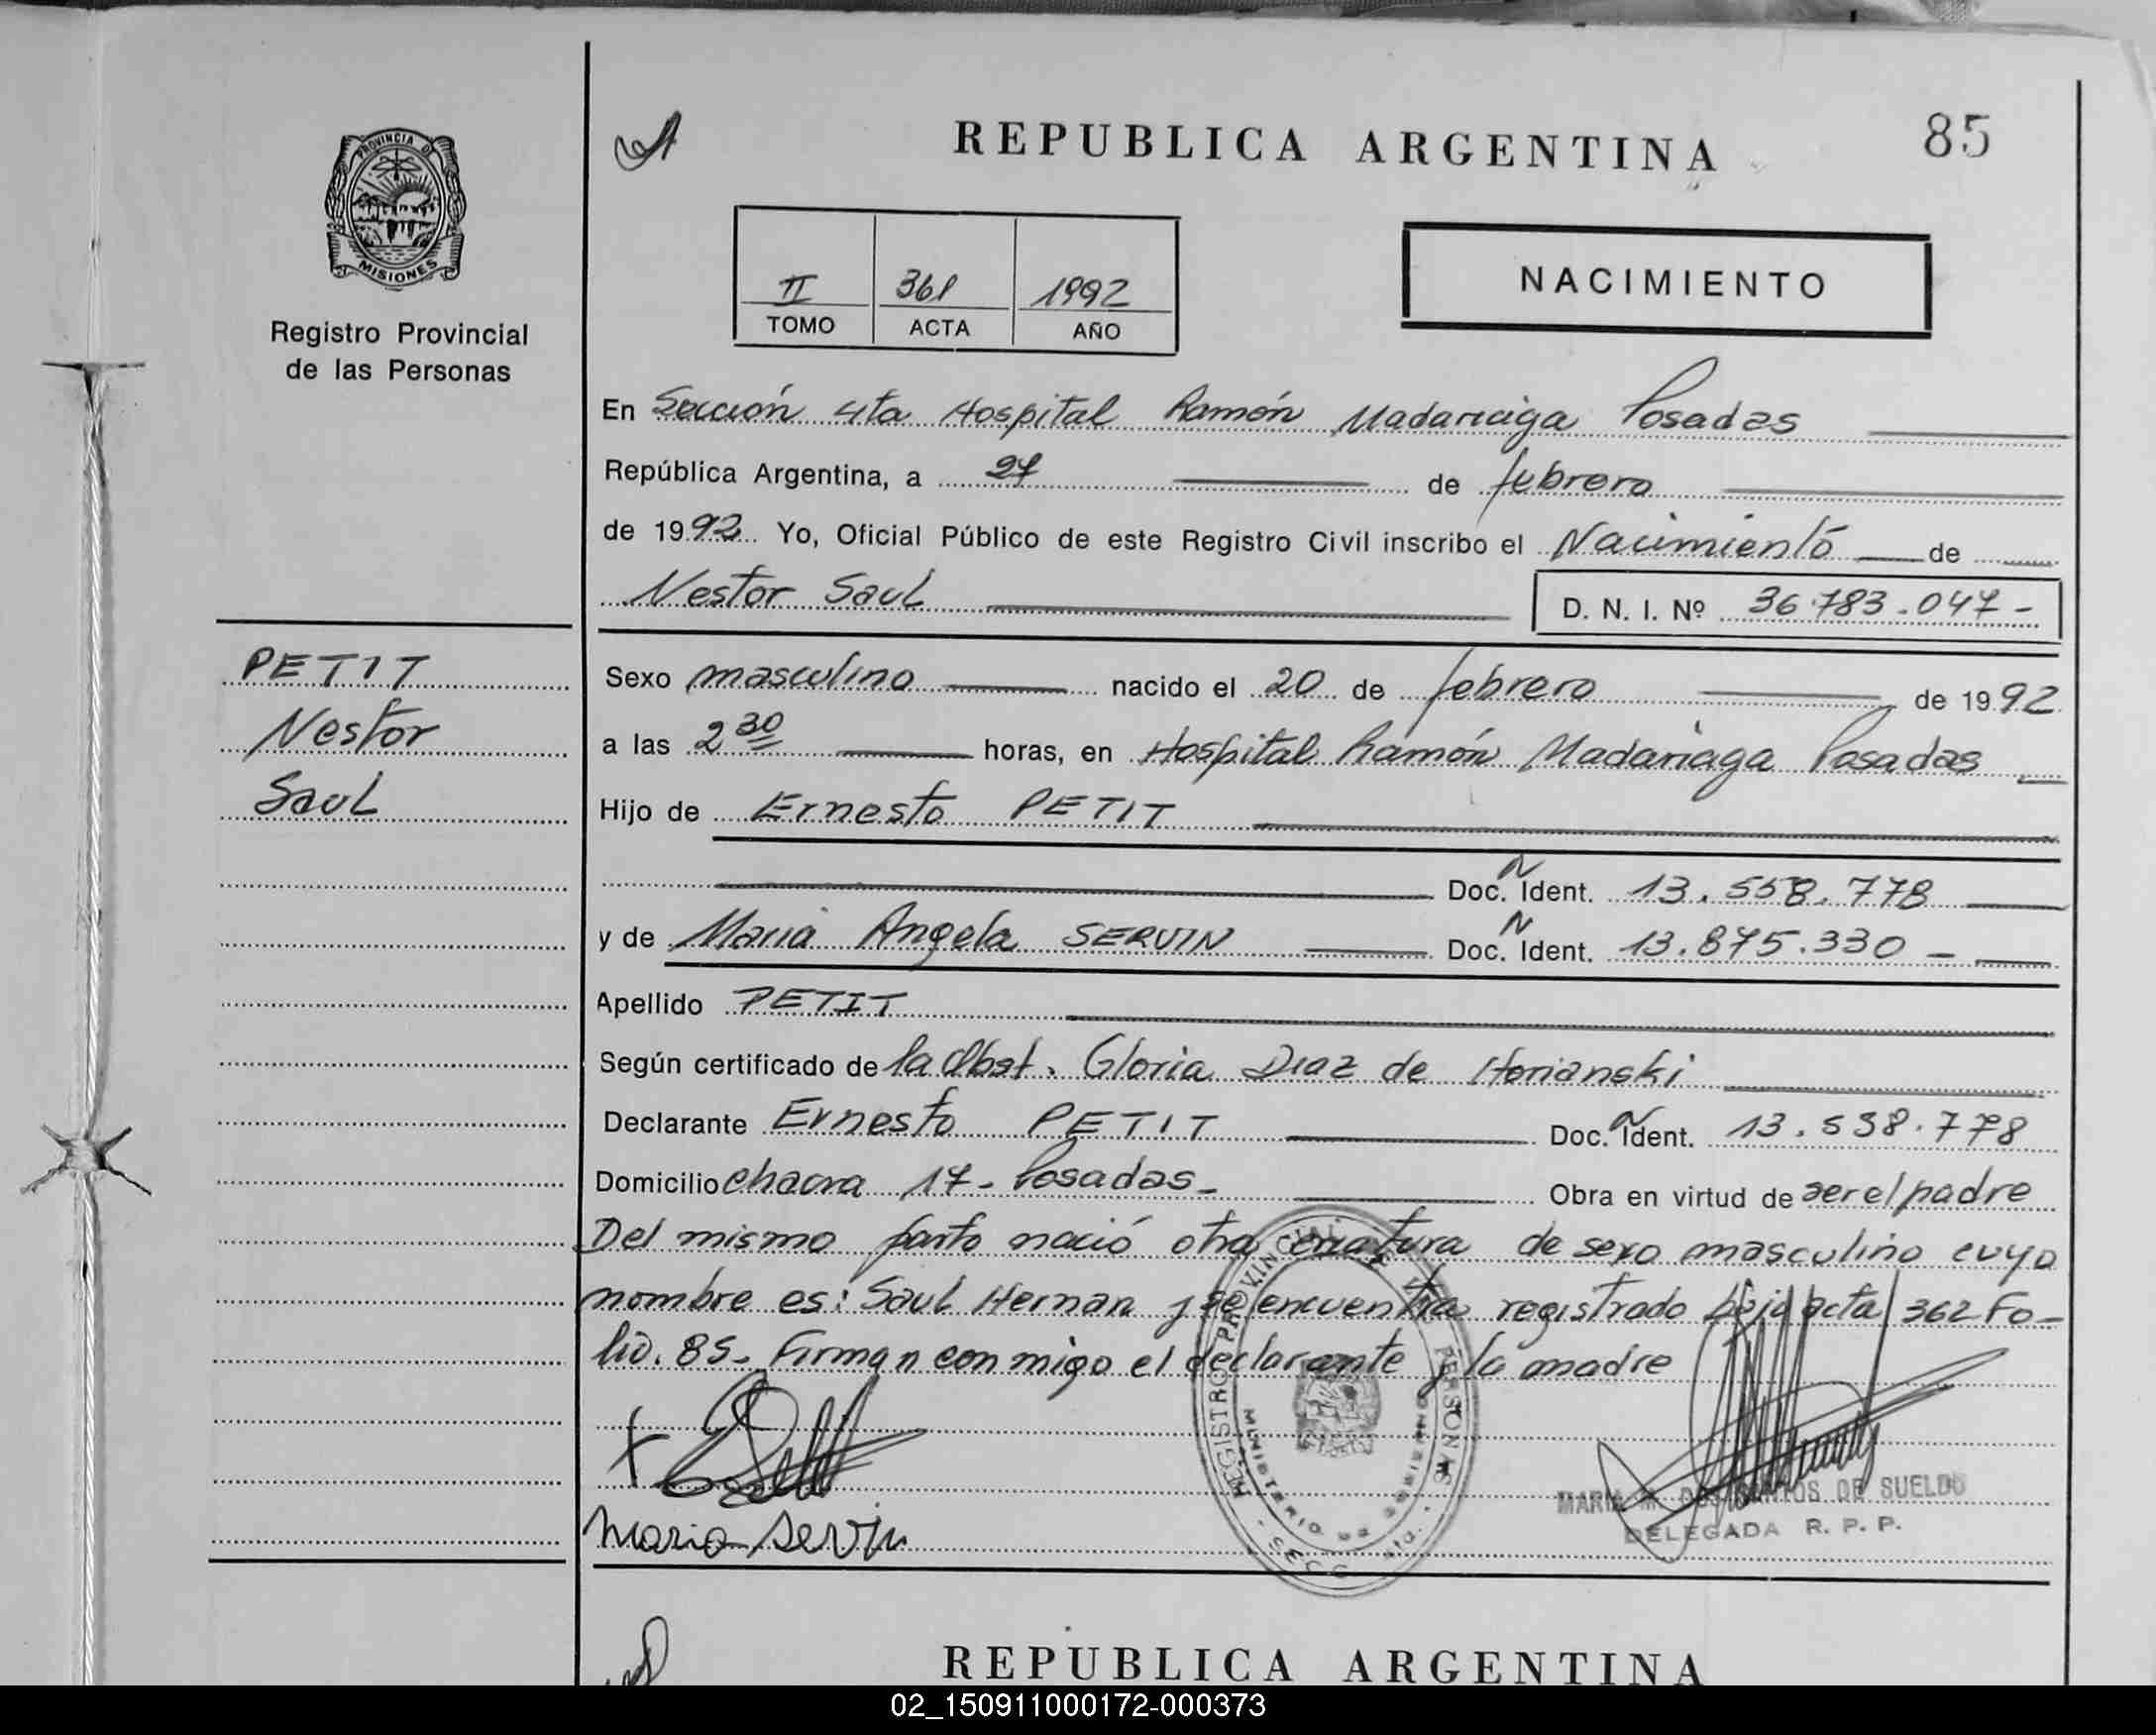 REPUBLICA ARGENTINA
85
PROVINCIA DE
MISIONES
Registro Provincial
de las Personas
II 361 1992
TOMO ACTA AÑO
NACIMIENTO
En Sección 4ta Hospital Ramón Madariaga Posadas
República Argentina, a 27 de febrero
de 1992 Yo, Oficial Público de este Registro Civil inscribo el Nacimiento de
Nestor Saul D. N. I. Nº 36.783.047-
PETIT
Nestor
Saul
Sexo masculino nacido el 20 de febrero de 1992
a las 2 30 horas, en Hospital Ramón Madariaga Posadas
Hijo de Ernesto PETIT
Doc. N Ident. 13.558.778
y de Maria Angela SERVIN Doc. N Ident. 13.875.330 -
Apellido PETIT
Según certificado de la Obst. Gloria Diaz de Horianski
Declarante Ernesto PETIT Doc. N Ident. 13.538.778
Domicilio chacra 17- Posadas- Obra en virtud de ser el padre
Del mismo parto nació otra criatura de sexo masculino cuyo
nombre es: Saul Hernan y se encuentra registrado bajo acta 362 Fo-
lio. 85- Firman con migo el declarante y la madre
REGISTRO PROVINCIAL DE LAS PERSONAS
MINISTERIO DE GOBIERNO
SECC. 4ta.
Maria Servin
MARIA M. DOS SANTOS DE SUELDO
DELEGADA R. P. P.
REPUBLICA ARGENTINA
02_150911000172-000373